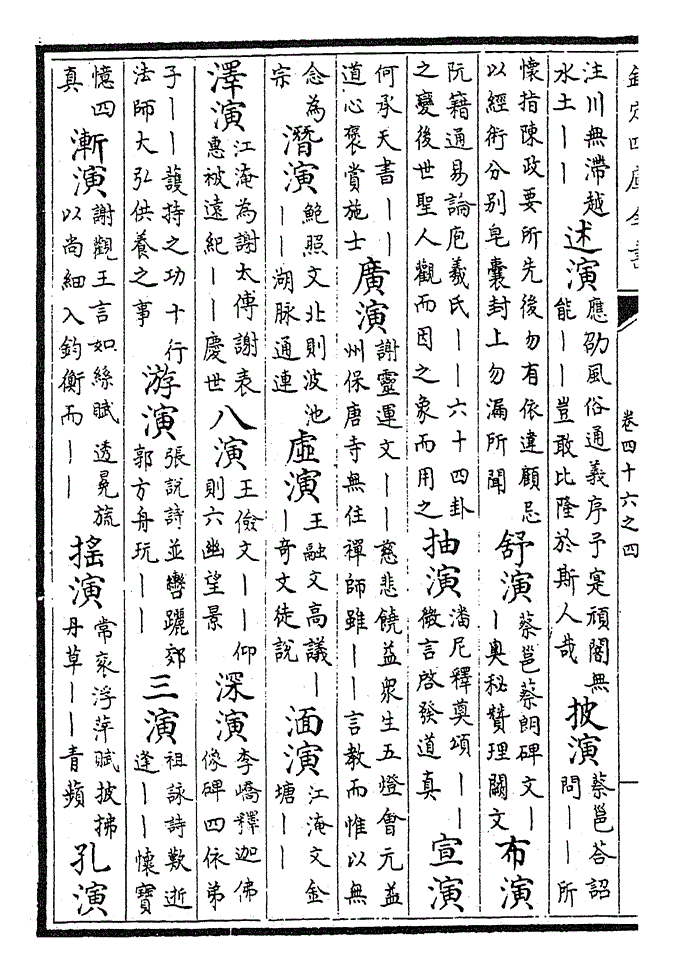 欽定四庫全書
卷四十六之四
一
注川無滯越
水土丨丨
述演
應劭風俗通義序予寔頑闇無
能丨丨豈敢比隆於斯人哉
披演
蔡邕荅詔
問丨丨所
懷指陳政要所先後勿有依違顧忌
以經術分別皂囊封上勿漏所聞
舒演
蔡邕蔡朗碑文丨
丨奥秘贊理闕文
布演
阮籍通易論庖羲氏丨丨六十四卦
之變後世聖人觀而因之象而用之
抽演
潘尼釋奠頌丨丨
微言啓發道真
宣演
何承天書丨丨
道心褒賞施士
廣演
謝靈運文丨丨慈悲饒益衆生五燈會元益
州保唐寺無住禪師雖丨丨言教而惟以無
念為
宗
潛演
鮑照文北則波池
丨丨湖脉通連
虛演
王融文高議丨
丨奇文徒說
湎演
江淹文金
塘丨丨
澤演
江淹為謝太傅謝表
惠被遠紀丨丨慶世
八演
王儉文丨丨仰
則六幽望景
深演
李嶠釋迦佛
像碑四依弟
子丨丨護持之功十行
法師大弘供養之事
游演
張說詩並轡躧郊
郭方舟玩丨丨
三演
祖詠詩歎逝
逢丨丨懷寶
憶四
真
漸演
謝觀王言如絲賦透晃旒
以尚細入鈞衡而丨丨
搖演
常衮浮萍賦披拂
丹草丨丨青蘋
孔演